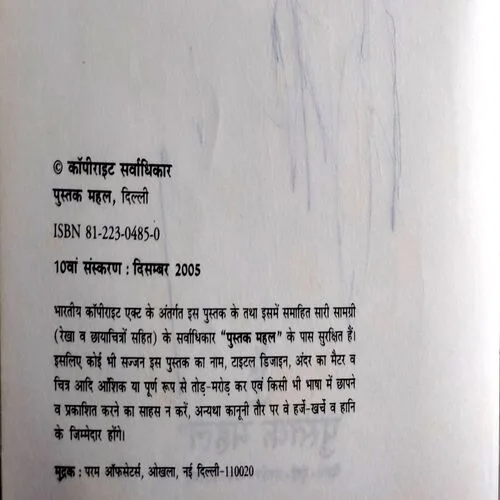 © कॉपीराइट सर्वाधिकार
पुस्तक महल, दिल्ली
ISBN 81-223-0485-0
10वां संस्करण : दिसम्बर 2005
भारतीय कॉपीराइट एक्ट के अंतर्गत इस पुस्तक के तथा इसमें समाहित सारी सामग्री
(रेखा व छायाचित्रों सहित) के सर्वाधिकार “पुस्तक महल” के पास सुरक्षित हैं।
इसलिए कोई भी सज्जन इस पुस्तक का नाम, टाइटल डिजाइन, अंदर का मैटर व
चित्र आदि आंशिक या पूर्ण रूप से तोड़-मरोड़ कर एवं किसी भी भाषा में छापने
व प्रकाशित करने का साहस न करें, अन्यथा कानूनी तौर पर वे हर्जे-खर्चे व हानि
के जिम्मेदार होंगे।
मुद्रक : परम ऑफसेटर्स, ओखला, नई दिल्ली-110020